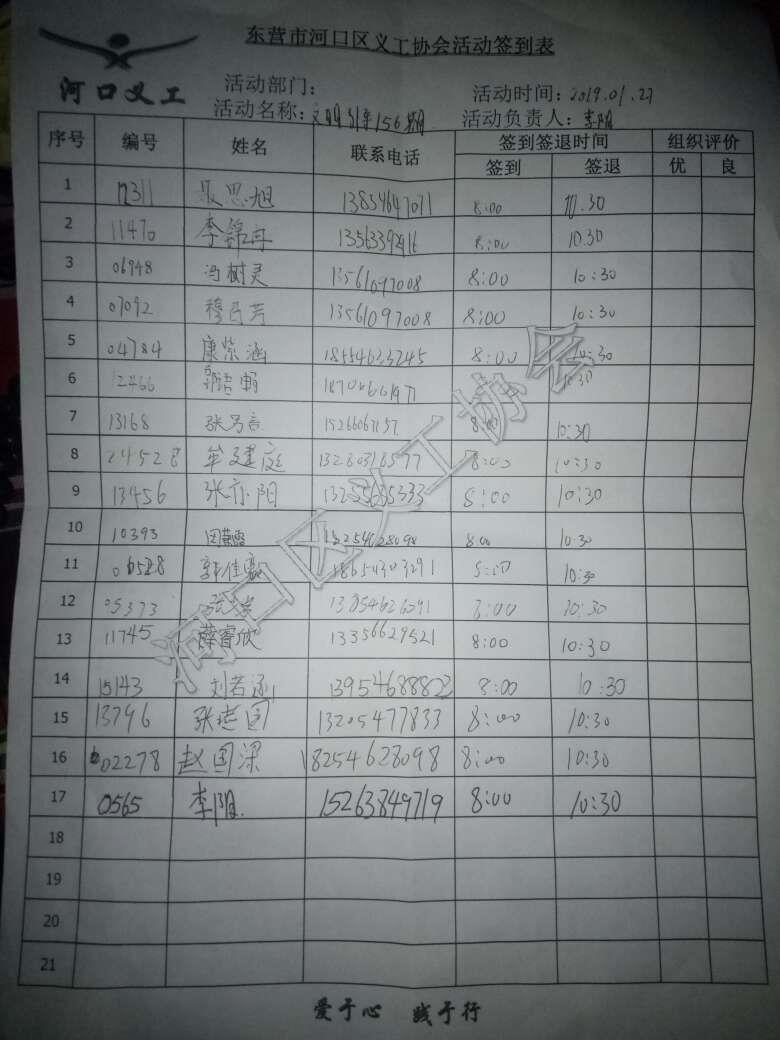 东营市河口区义工协会活动签到表
河口义工
活动部门： 活动时间：2019.01.27
活动名称：文明引导156期 活动负责人：李阳
序号 编号 姓名 联系电话 签到签退时间 组织评价
签到 签退 优 良
1 12311 聂思旭 13854647071 8:00 10.30
2 11470 李锦冉 8:00 10.30
3 06948 冯树灵 13561097008 8:00 10:30
4 07092 穆 芳 13561097008 8:00 10:30
5 04784 康紫涵 18554633245 8:00 10:30
6 12466 10:30
7 13168 张 15266067157 8:00 10:30
8 24528 牟建庭 13280316577 8:00 10:30
9 13456 张 阳 8:00 10:30
10 10393 8:00 10:30
11 06528 郭佳 18654303291 8:00 10:30
12 05373 张 13854626091 8:00 10:30
13 11745 薛睿欣 13356629521 8:00 10:30
14 15143 刘若涵 13954688822 8:00 10:30
15 13796 张 13205477833 8:00 10:30
16 02278 赵国梁 18254628098 8:00 10:30
17 0565 李阳 15263849719 8:00 10:30
18
19
20
21
爱于心 践于行
河口区义工协会